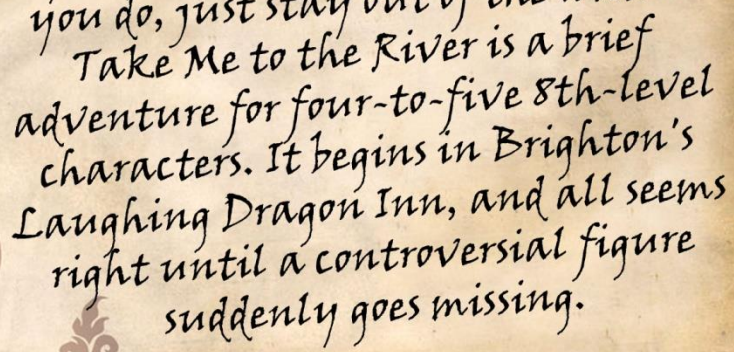 you do, just stay out of the
Take Me to the River is a brief
adventure for four-to-five 8th-level
characters. It begins in Brighton's
Laughing Dragon Inn, and all seems
right until a controversial figure
suddenly goes missing.